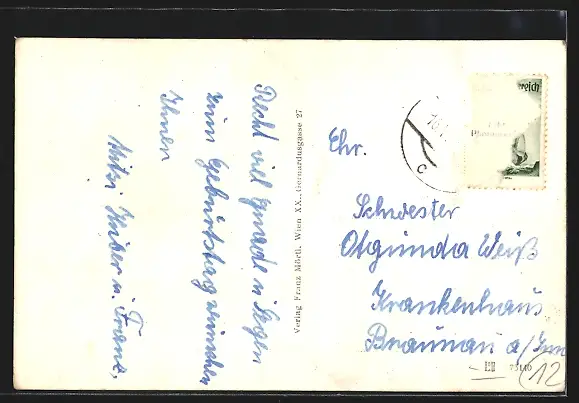 Recht viel Gnade u. Segen
zum Geburtstag wünschen
Ihnen
Mitzi Huber u. Franz.
Verlag Franz Mörtl, Wien XX., Gerhardusgasse 27
Ehr.
Schwester
Otgunda Weiß
Krankenhaus
Braunau a/Inn
75140
12
reich
c